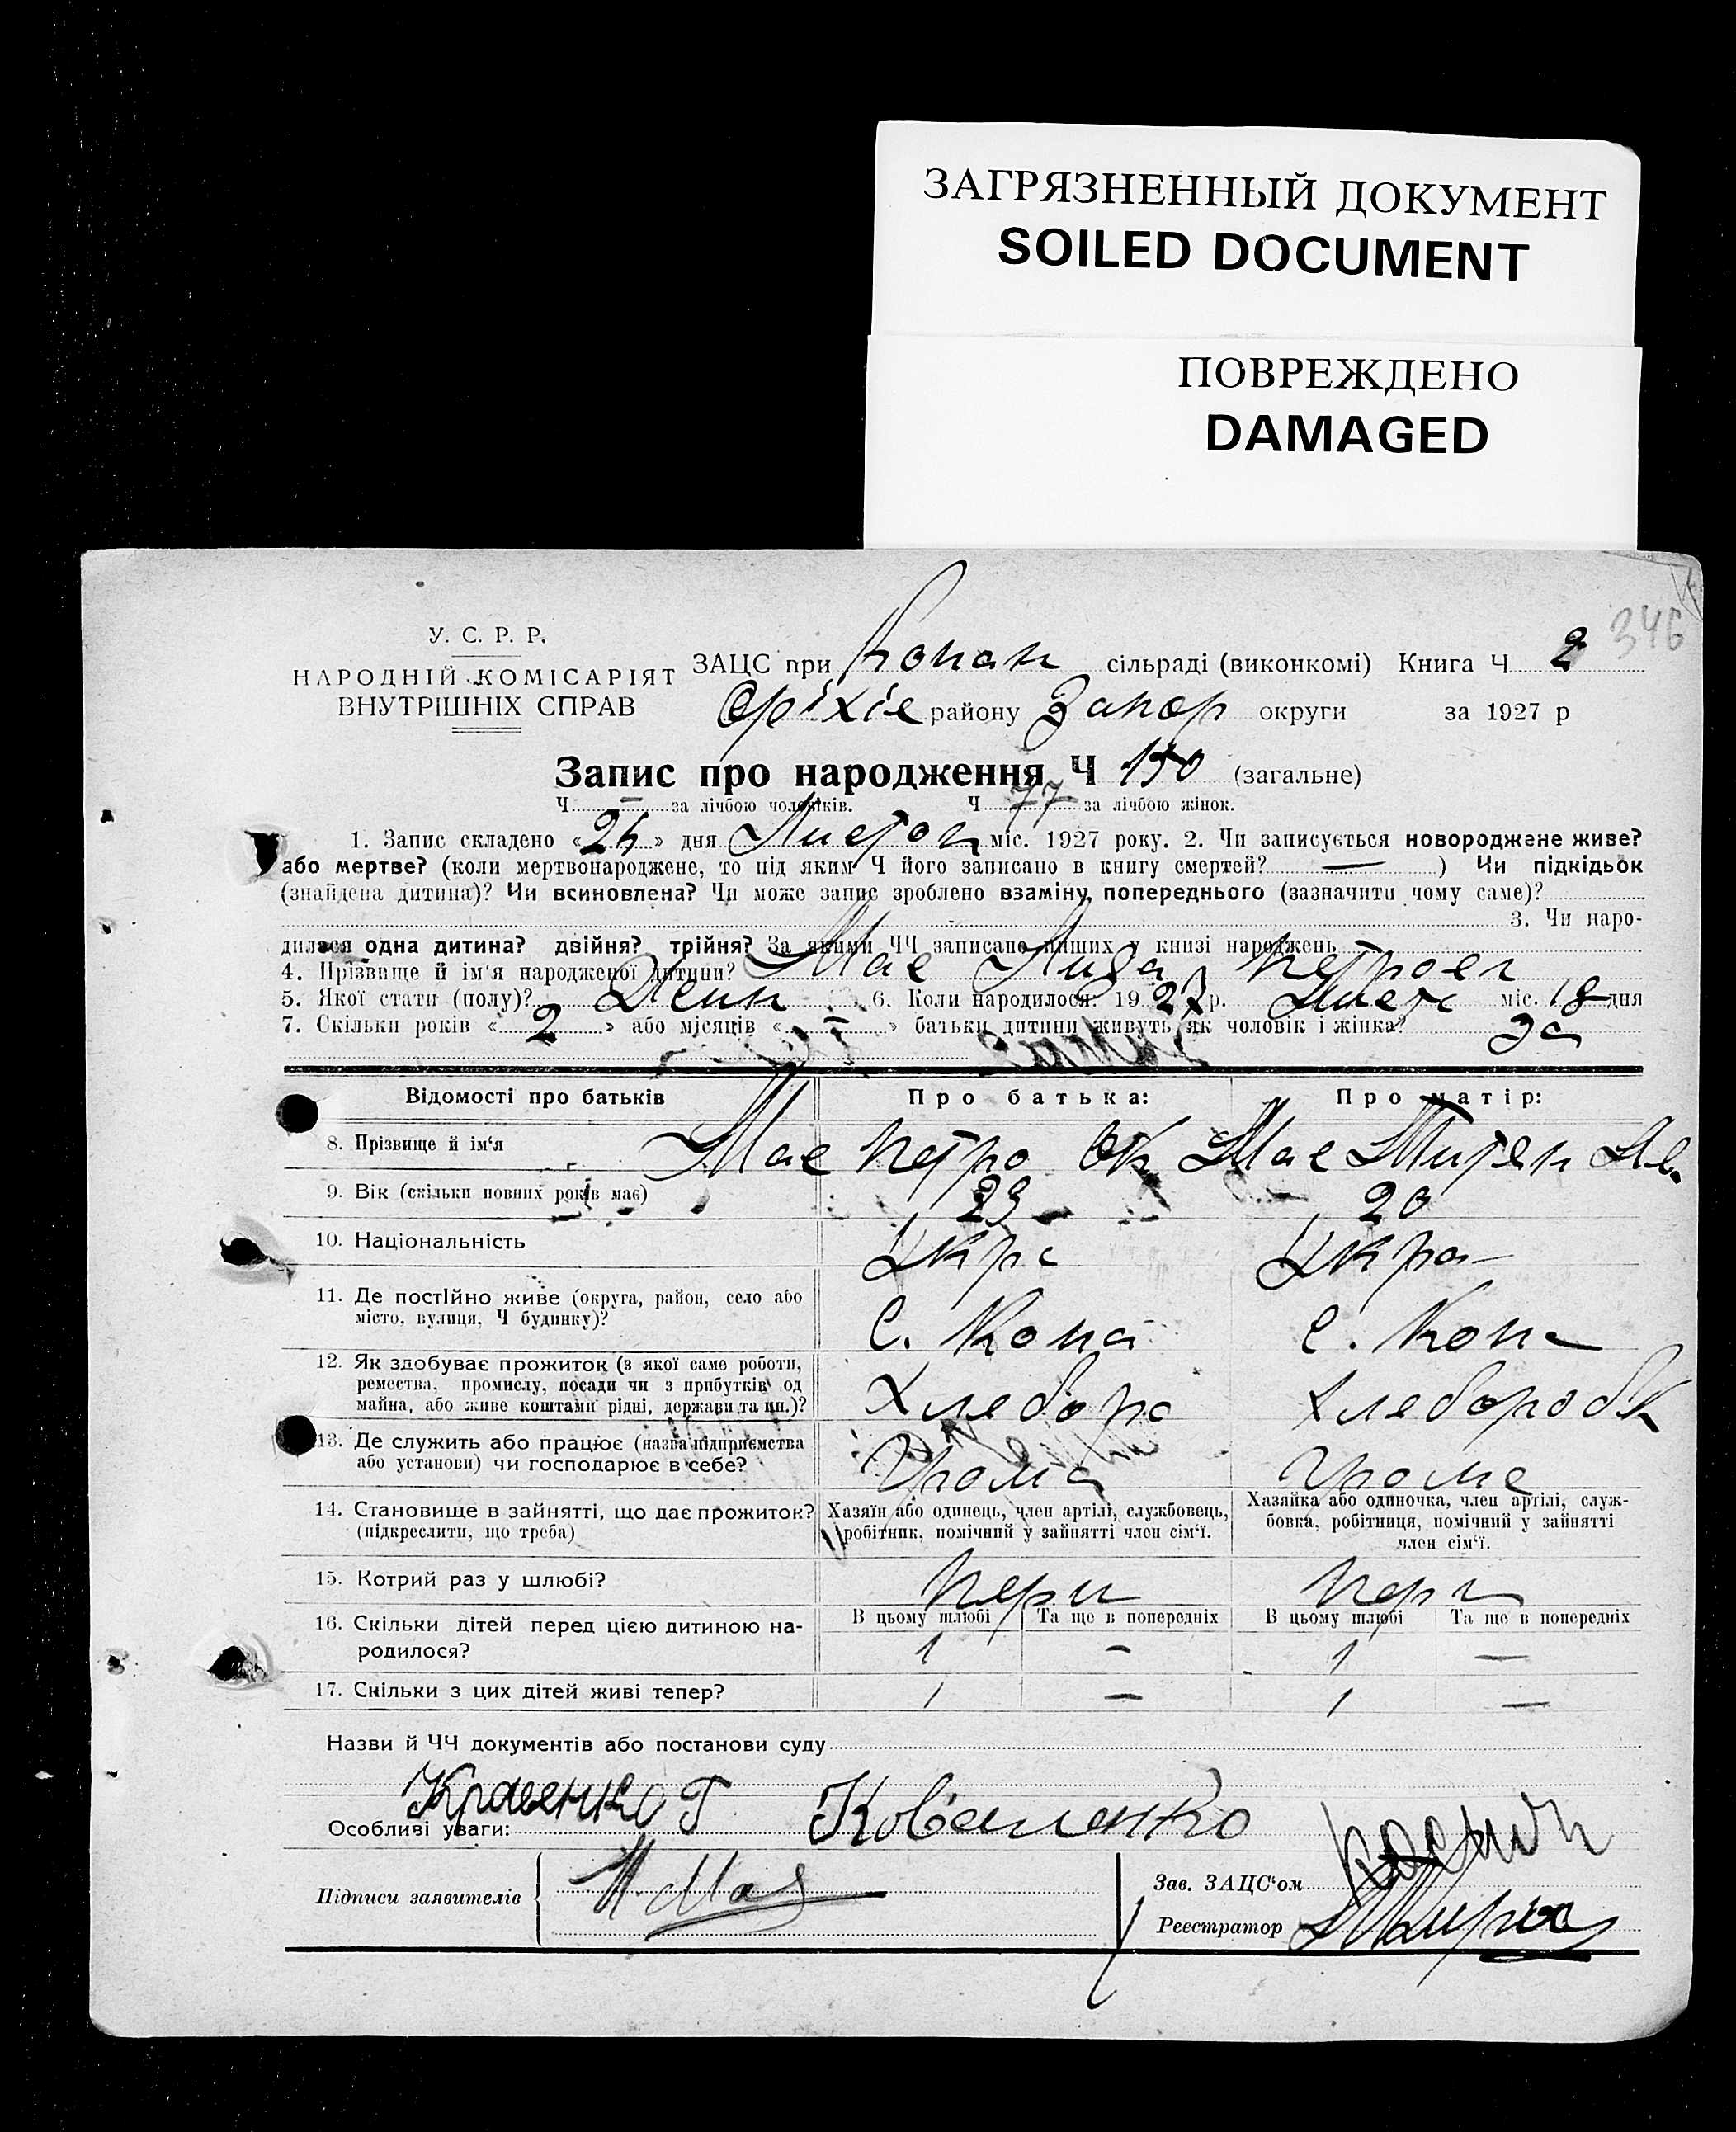 ЗАГРЯЗНЕННЫЙ ДОКУМЕНТ
SOILED DOCUMENT
ПОВРЕЖДЕНО
DAMAGED
346
У. С. Р. Р.
НАРОДНІЙ КОМІСАРІЯТ
ВНУТРІШНІХ СПРАВ
ЗАЦС при Копан сільраді (виконкомі) Книга Ч 2
Оріхів району Запор округи за 1927 р
Запис про народження Ч 150 (загальне)
Ч — за лічбою чоловіків. Ч 77 за лічбою жінок.
1. Запис складено « » дня Листоп міс. 1927 року. 2. Чи записується новороджене живе?
або мертве? (коли мертвонароджене, то під яким Ч його записано в книгу смертей? — ) Чи підкідьок
(знайдена дитина)? Чи всиновлена? Чи може запис зроблено взаміну попереднього (зазначити чому саме)?
3. Чи наро-
дилася одна дитина? двійня? трійня? За якими ЧЧ записано инших у книзі народжень
4. Прізвище й ім'я народженої дитини? Мас Лида Петров
5. Якої стати (полу)? Жин 6. Коли народилося: 1927 р. Лист міс. 18 дня
7. Скільки років « 2 » або місяців « — » батьки дитини живуть як чоловік і жінка? За
Відомості про батьків Про батька: Про матір:
8. Прізвище й ім'я Мас Петро Мас
9. Вік (скільки повних років має) 23 20
10. Національність Укра Укра
11. Де постІйно живе (округа, район, село або
місто, вулиця, Ч будинку)? С. Копа С. Копа
12. Як здобуває прожиток (з якої саме роботи,
ремества, промислу, посади чи з прибутків од
майна, або живе коштами рідні, держави та ин.)? Хлебора Хлебороб
13. Де служить або працює (назва підприємства
або установи) чи господарює в себе? Урома Урома
14. Становище в зайнятті, що дає прожиток?
(підкреслити, що треба)
Хазяїн або одинець, член артілі, службовець,
робітник, помічний у зайнятті член сім'ї.
Хазяйка або одиночка, член артілі, служ-
бовка, робітниця, помічний у зайнятті
член сім'ї.
15. Котрий раз у шлюбі? Перш Перш
16. Скільки дітей перед цією дитиною на-
родилося?
В цьому шлюбі Та ще в попередніх В цьому шлюбі Та ще в попередніх
1 — 1 —
17. Скільки з цих дітей живі тепер? 1 — 1 —
Назви й ЧЧ документів або постанови суду
Кравенко Г Коваленко
Особливі уваги:
Підписи заявителів П. Мас
Зав. ЗАЦС'ом
Реєстратор